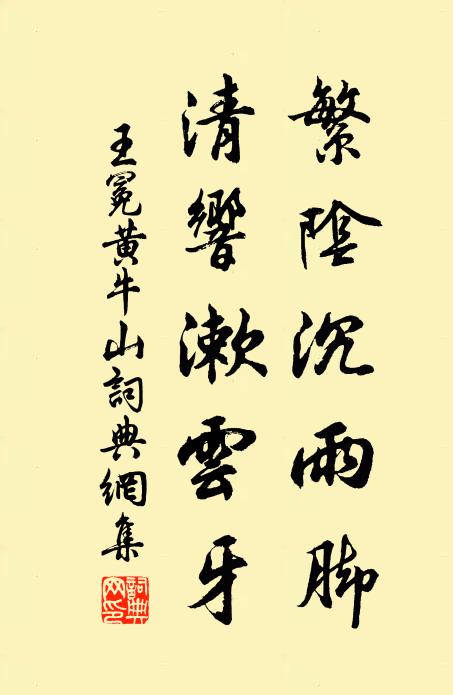 繁陰沉雨脚
清響漱雲牙
王冕黄牛山詞典網集
詞典網印